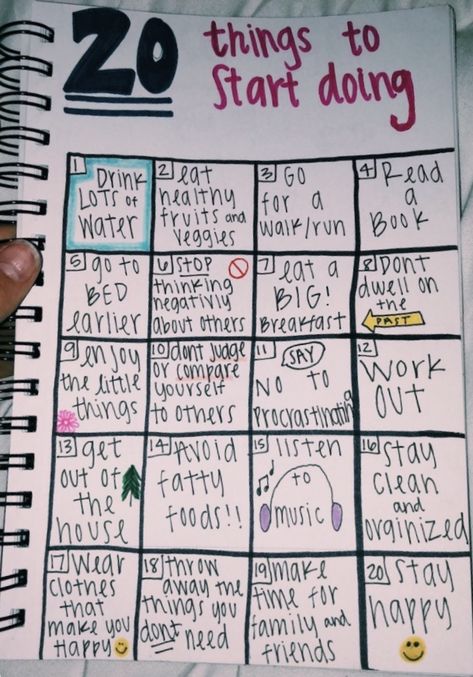 20 things to
Start doing
1 Drink
LOTS of
Water
2 eat
healthy
fruits and
veggies
3 Go
for a
walk/run
4 Read
a
Book
5 go to
BED
earlier
6 STOP
thinking
negativly
about others
7 eat a
BIG!
Breakfast
8 Dont
dwell on
the
PAST
9 enjoy
the little
things
10 dont judge
or compare
yourself
to others
11 SAY
NO to
Procrastinating
12
Work
OUT
13 get
out of
the
house
14 Avoid
fatty
foods!!
15 listen
to
music
16 Stay
clean
and
orginized
17 Wear
clothes
that
make you
Happy
18 throw
away the
things you
dont need
19 make
time for
family and
friends
20 Stay
happy